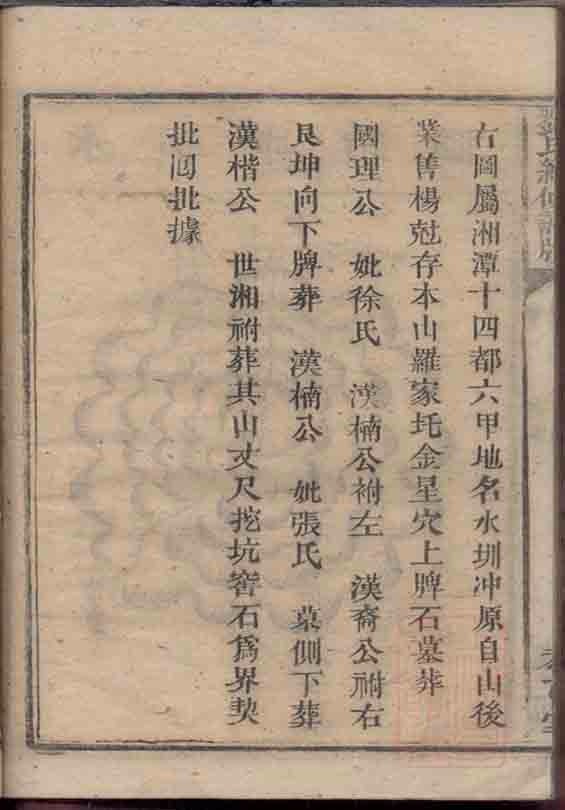 右圖屬湘潭十四都六甲地名水圳冲原自山後
業售楊尅存本山羅家圫金星穴上牌石墓葬
國理公 妣徐氏 漢楠公祔左 漢裔公祔右
艮坤向下牌葬 漢楠公 妣張氏 墓側下葬
漢楷公 世湘祔葬其山丈尺挖坑窖石爲界契
批囘批據